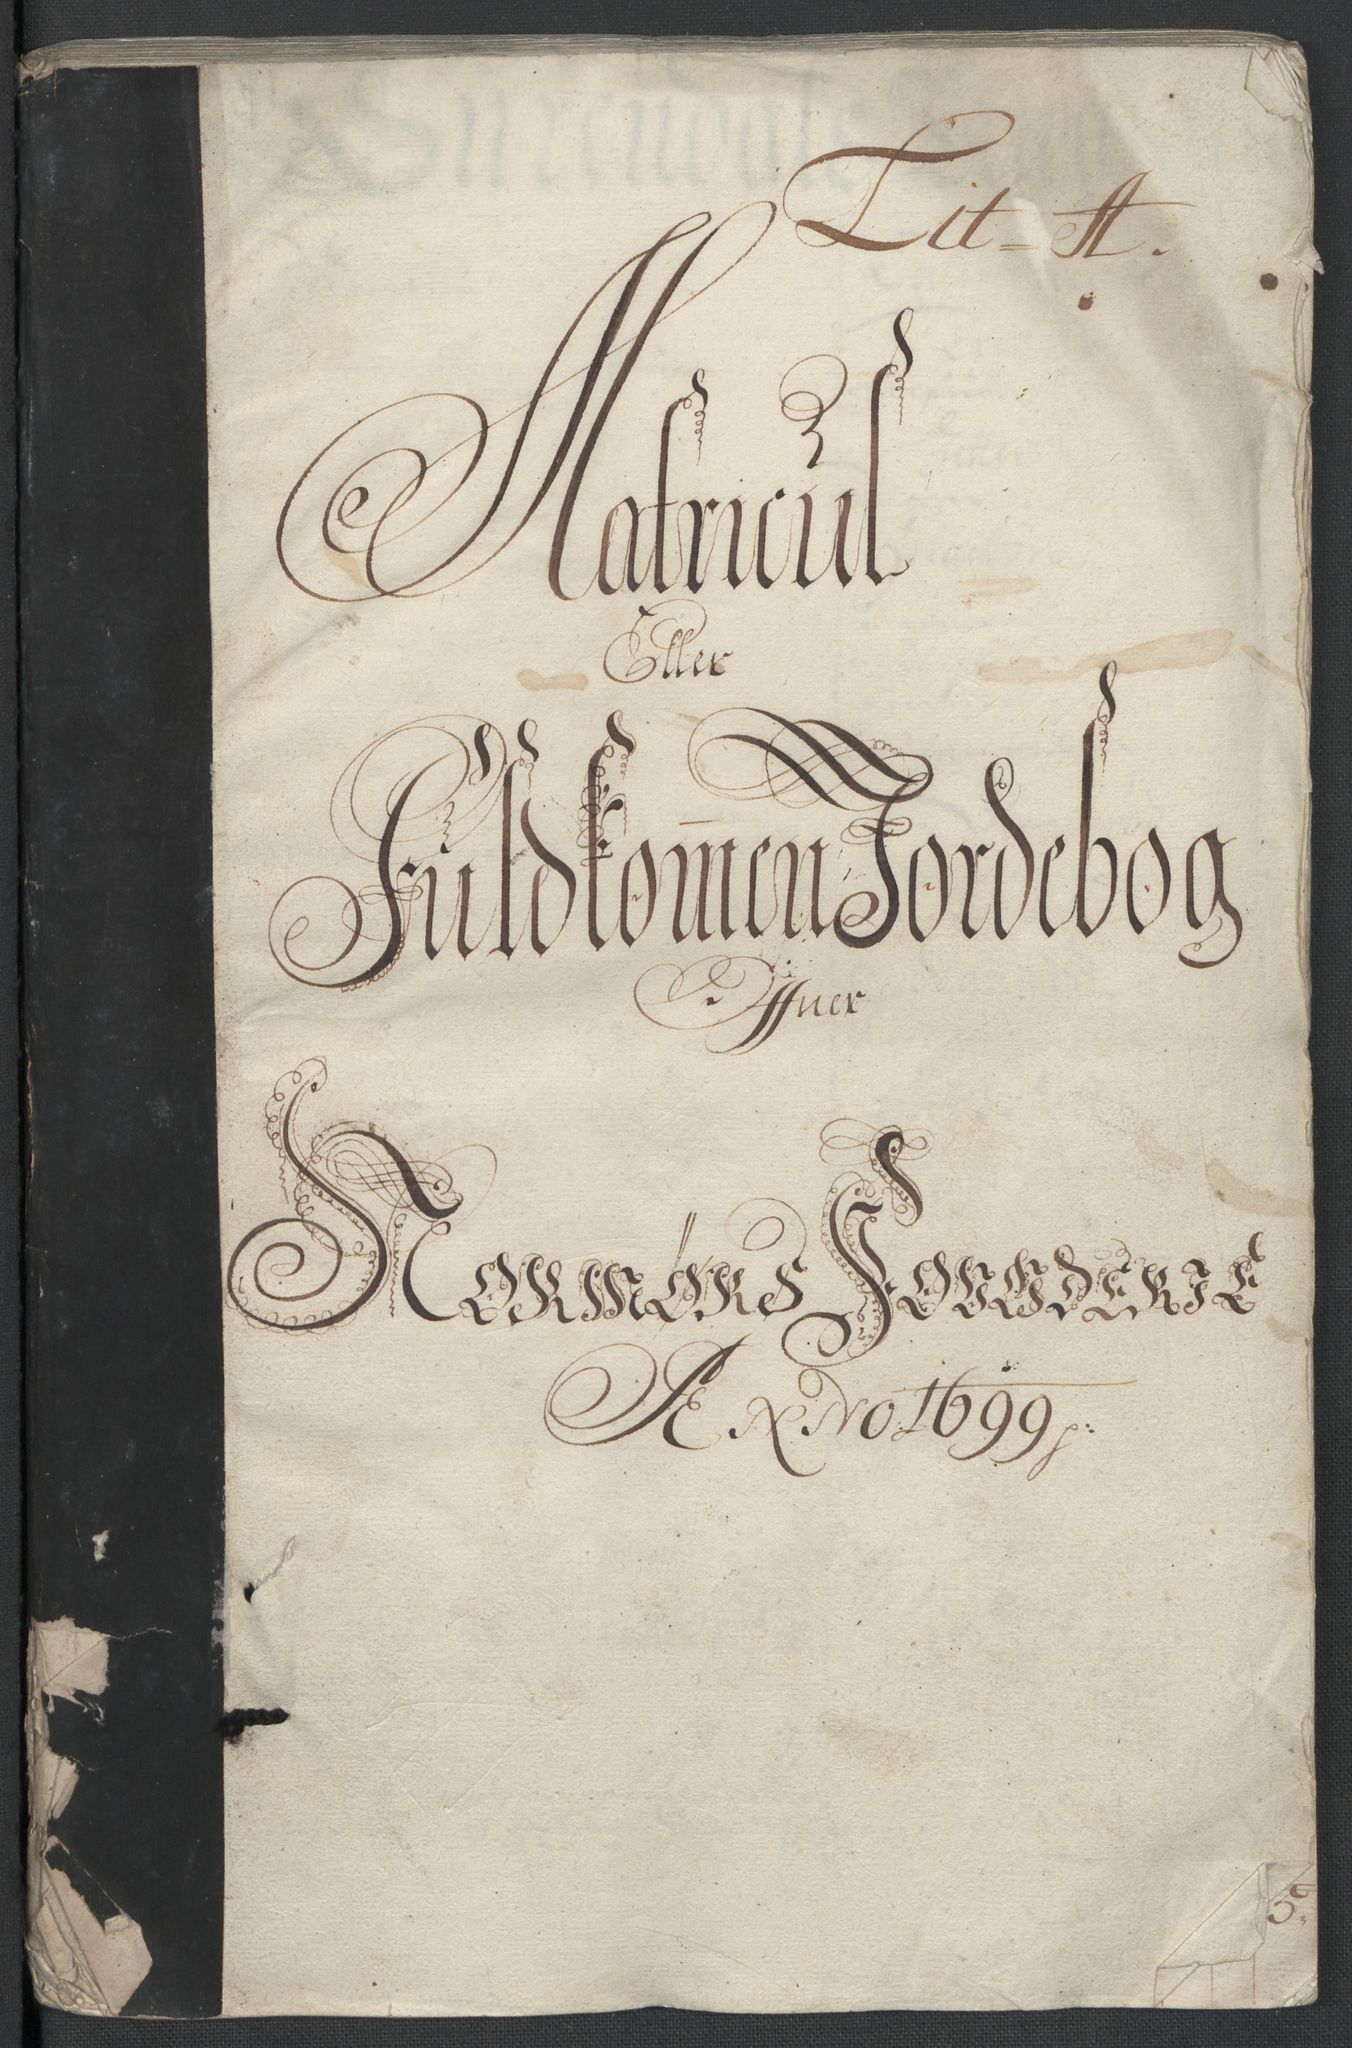 Lit-A.
Matricul
Eller
Fuldkom̅en Jordebog
Offuer
Nordmørs Fougderie
Anno 1699